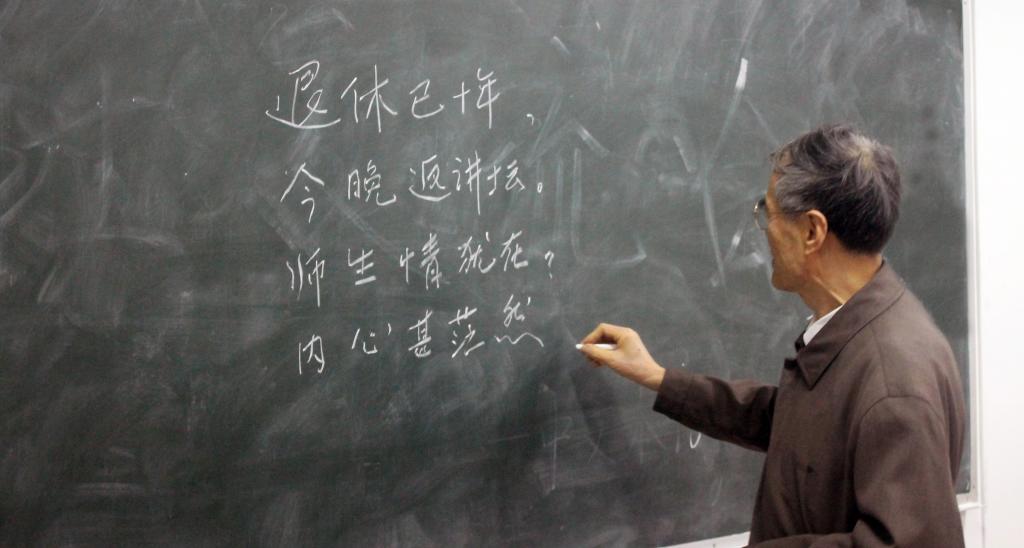 退休已十年，
今晚返讲坛。
师生情犹在？
内心甚茫然